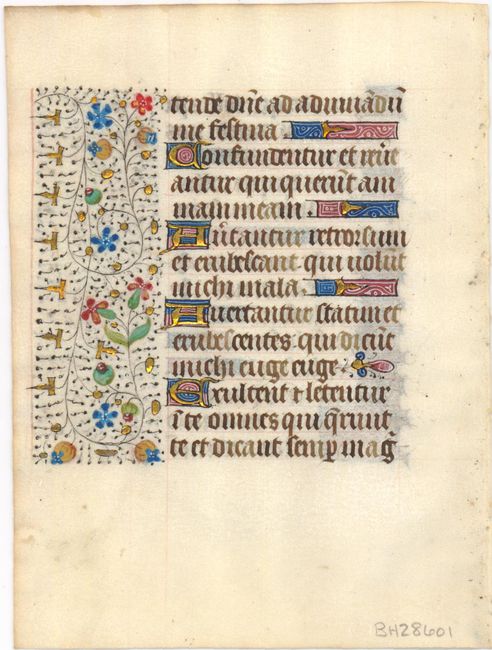 tende dn̄e ad adiuuādū
me festina.
Confundentur et reue
antur qui querūt ani
mam meam.
Auertantur retrorsum
et erubescant qui uolūt
michi mala.
Auertantur statim et
erubescentes qui dicūt
michi euge euge.
Exultent et letentur
ī te omnes qui q̄runt
te et dicant semp̄ mag
BH28601